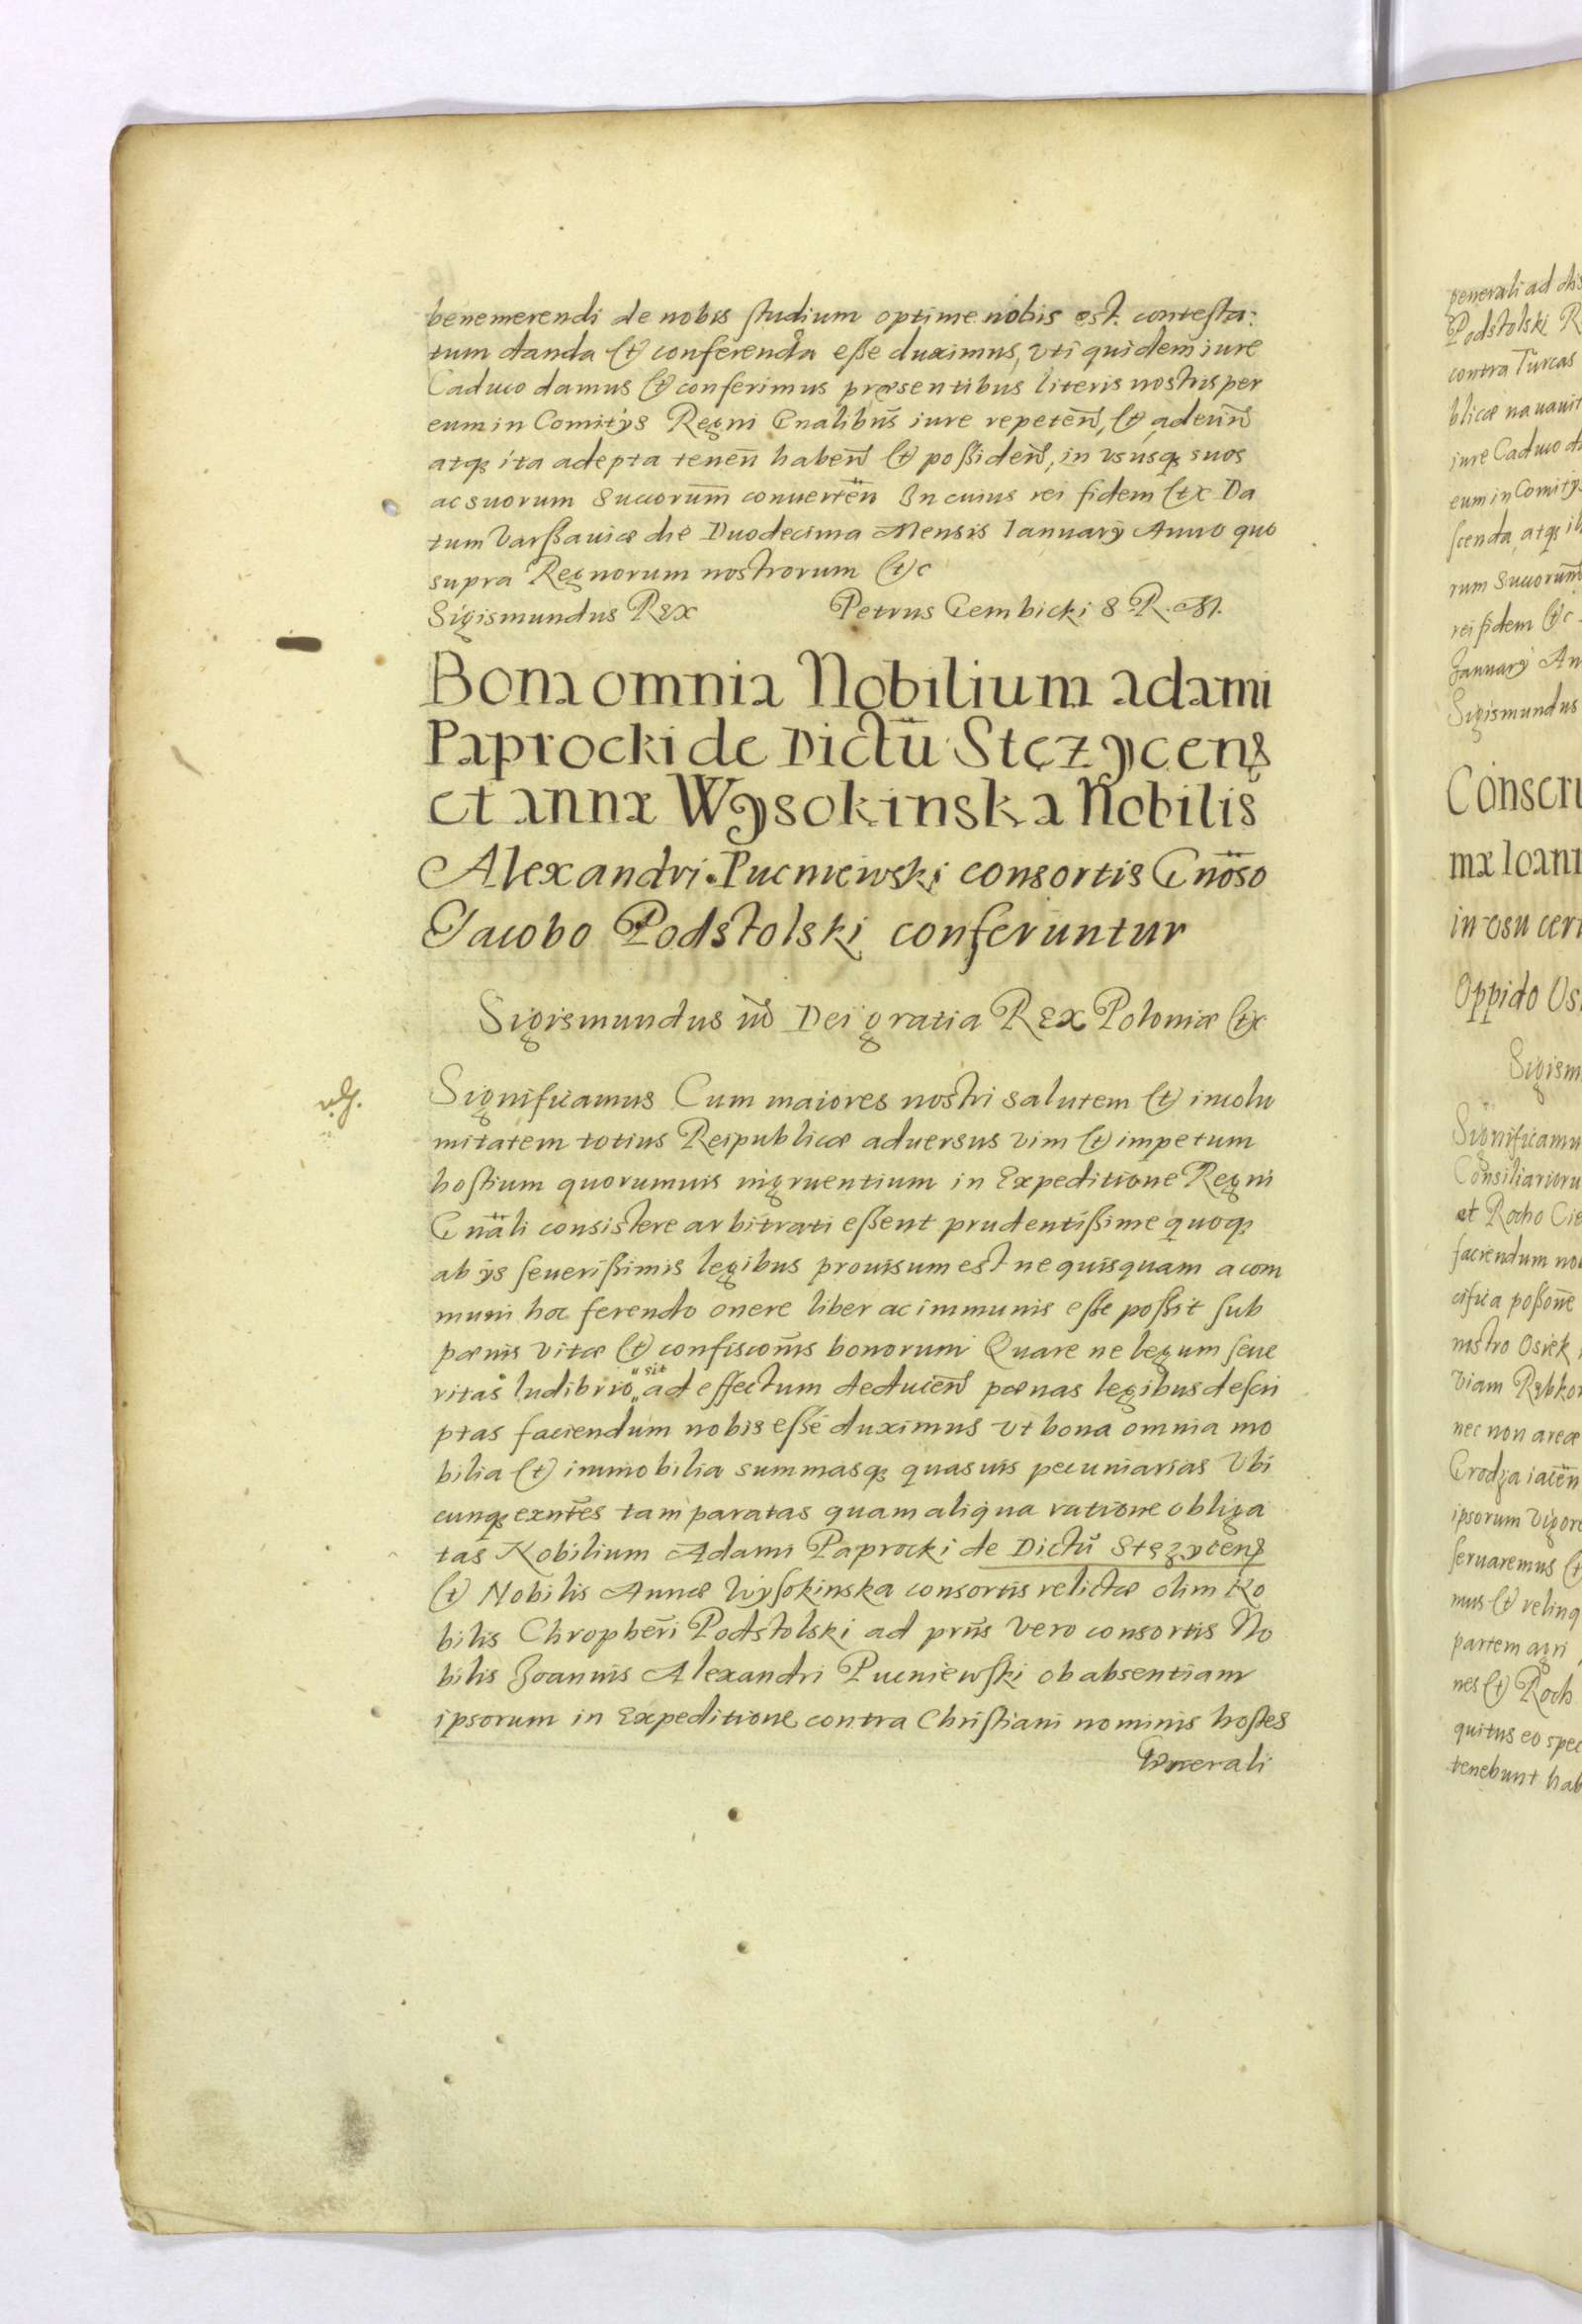 benemerendi de nobis studium optime nobis est. contesta:
tum danda et conferenda esse duximus, vti quidem iure
Caduco damus et conferimus præsentibus literis nostris per
eum in Comitys Regni Gnalibus iure repeten, et adeun
atq ita adepta tenen haben et possiden, in vsusq suos
ac suorum Succorum conuerten In cuius rei fidem etc Da
tum Varssauiæ die Duodecima Mensis Ianuary Anno quo
supra Regnorum nostrorum etc
Sigismundus Rex Petrus Gembicki S R. M.
Bona omnia Nobilium adami
Paprocki de Dictu Stęzycens
et annæ Wysokinska Nobilis
Alexandri Pucniewski consortis Gnoso
Jacobo Podstolski conferuntur
Sigismundus iii Dei gratia Rex Poloniæ etc
Significamus Cum maiores nostri salutem et incolu
mitatem totius Reipublicæ aduersus vim et impetum
hostium quorumuis ingruentium in Expeditione Regni
Gnali consistere arbitrati essent prudentissime quoq
ab ys seuerissimis legibus prouisum est ne quisquam a com
muni hoc ferendo onere liber ac immunis esse possit sub
pœnis vitæ et confiscois bonorum Quare ne legum seue
ritas ludibrio sit ad effectum deducen pœnas legibus descri
ptas faciendum nobis esse duximus vt bona omnia mo
bilia et immobilia summasq quasuis pecuniarias Vbi
cunq exntes tam paratas quam aliqua ratione obliga
tas Nobilium Adami Paprocki de Dictu Stęzycens
et Nobilis Annæ Wysokinska consortis relictæ olim No
bilis Chropheri Podstolski ad prns vero consortis No
bilis Joannis Alexandri Pucniewski ob absentiam
ipsorum in Expeditione contra Christiani nominis hostes
Generali
generali ad dis
Podstolski R
contra Turcas
blicæ nauauit
iure Caduco d
eum in Comitys
scenda, atq it
rum Succorum
rei fidem etc
January An
Sigismundus
Conscri
ma Ioann
in vsu cert
Oppido Os
Sigism
Significamu
Consiliarioru
et Rocho Cie
faciendum no
cifica possone
nostro Osiek
Viam Rębko
nec non areæ
Grodza iacen
ipsorum vigore
seruaremus et
mus et relinq
partem agri
nes et Roch
quitus eo spec
tenebunt hab